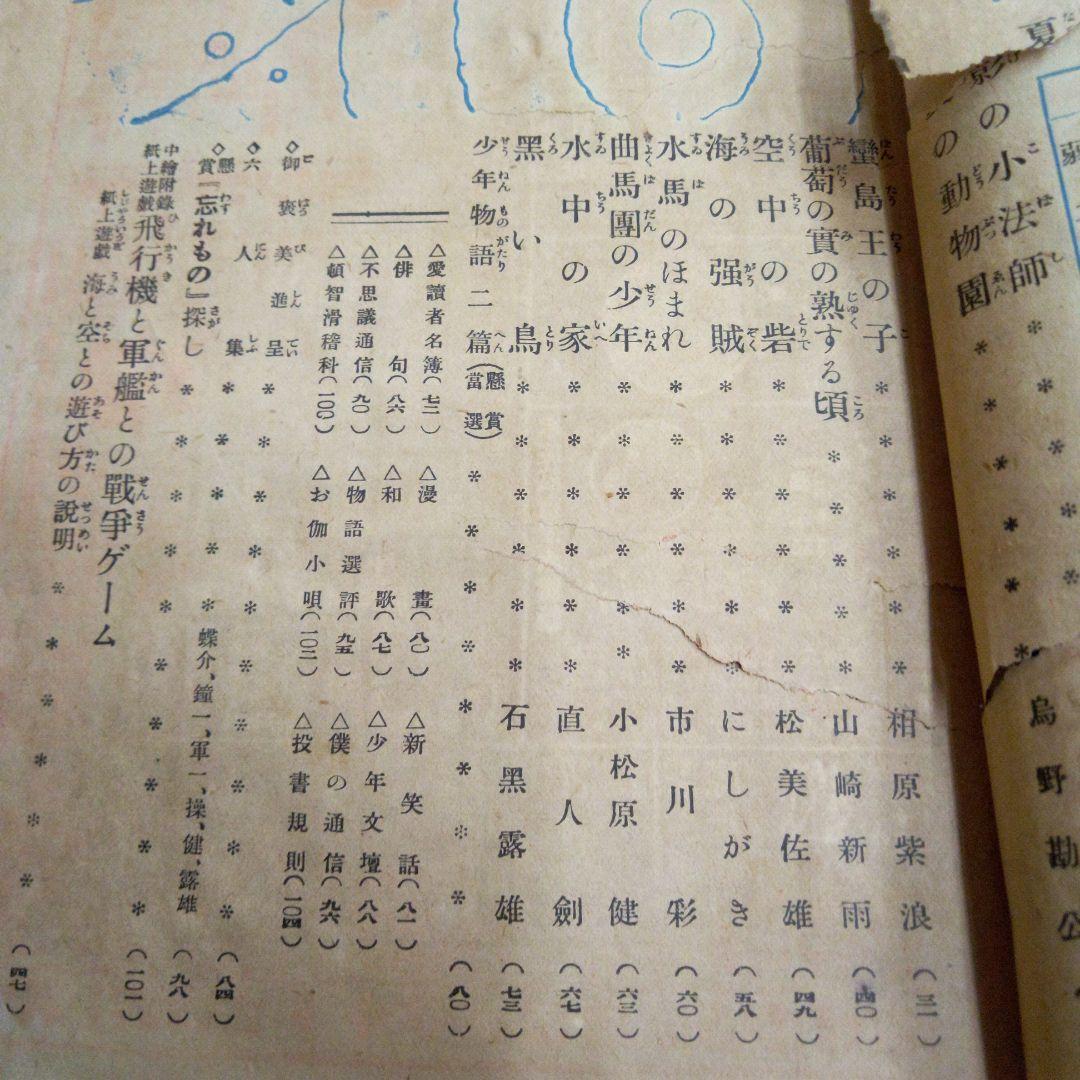 夏
の小法師＊＊＊＊＊＊ 烏野勘公
の動物園＊＊＊＊＊
蠻島王の子＊＊＊＊＊＊ 相原紫浪（三一）
葡萄の實の熟する頃＊＊＊＊＊ 山崎新雨（四〇）
空中の砦＊＊＊＊＊＊ 松美佐雄（四九）
海の强賊＊＊＊＊＊＊ にしがき（五八）
水馬のほまれ＊＊＊＊＊＊ 市川彩（六〇）
曲馬團の少年＊＊＊＊＊＊ 小松原健（六三）
水中の家＊＊＊＊＊＊ 直人劍（六七）
黑い鳥＊＊＊＊＊＊ 石黑露雄（七三）
少年物語二篇（懸賞當選）＊＊＊＊＊＊＊＊（八〇）
△愛讀者名簿（七二） △漫畫（八〇） △新笑話（八一）
△俳句（八六） △和歌（八七） △少年文壇（八八）
△不思議通信（九〇） △物語選評（九五） △僕の通信（九六）
△頓智滑稽科（一〇〇） △お伽小唄（一〇二） △投書規則（一〇四）
◇御褒美進呈＊＊＊＊＊＊＊＊＊＊（八四）
◇六人集＊＊＊＊＊ 蝶介、鐘一、軍一、操、健、露雄（九八）
◇懸賞『忘れもの』探し＊＊＊＊＊＊＊＊＊＊（一〇一）
中繪附錄紙上遊戲 飛行機と軍艦との戰爭ゲーム
紙上遊戲 海と空との遊び方の說明＊＊＊＊＊＊（四七）